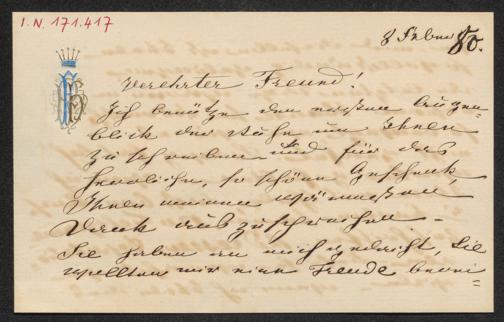 I. N. 171.417
8 Feber 80.
Verehrter Freund!
Ich benütze den ersten Augen=
blick der Ruhe um Ihnen
zu schreiben und für das
herrliche, so schöne Geschenk,
Ihnen meinen wärmsten
Dank auszusprechen.
Sie haben an mich gedacht, Sie
wollten mir eine Freude berei=